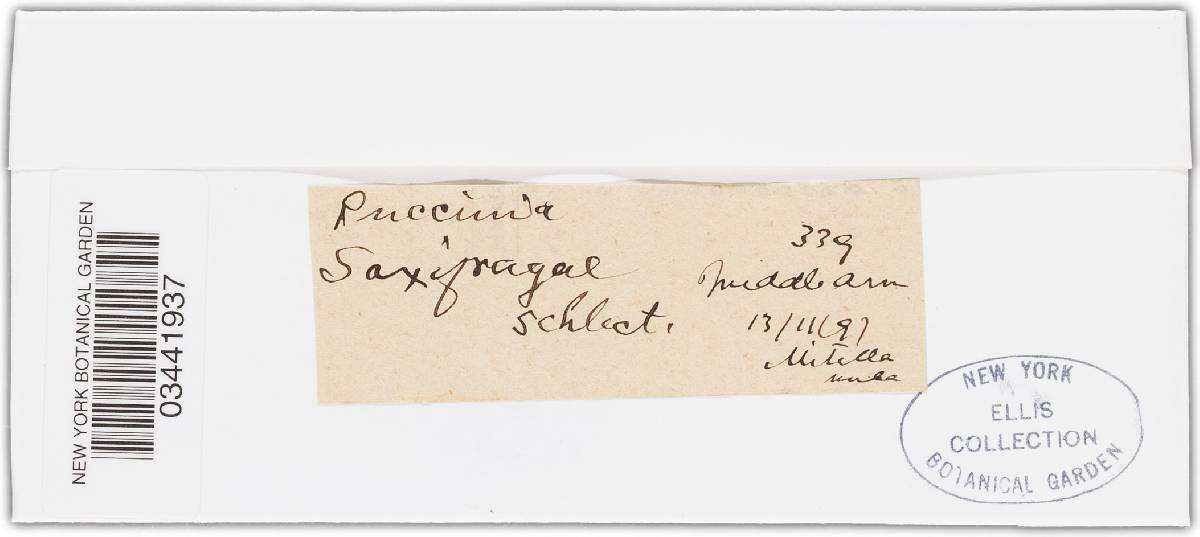 NEW YORK BOTANICAL GARDEN
03441937
Puccinia
Saxifragae
Schlect.
339
Middle arm
13/11/97
Mitella
nuda
NEW YORK
ELLIS
COLLECTION
BOTANICAL GARDEN